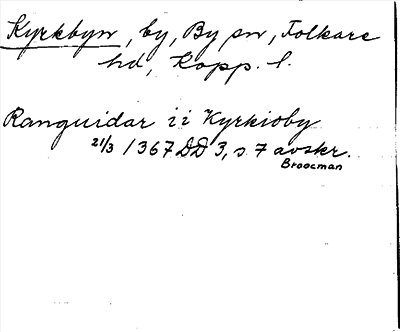 Kyrkbyn, by, By sn, Folkare
hd, Kopp. l.
Ranguidar ii Kyrkioby
21/3 1367 DD 3, s 7 avskr.
Broocman